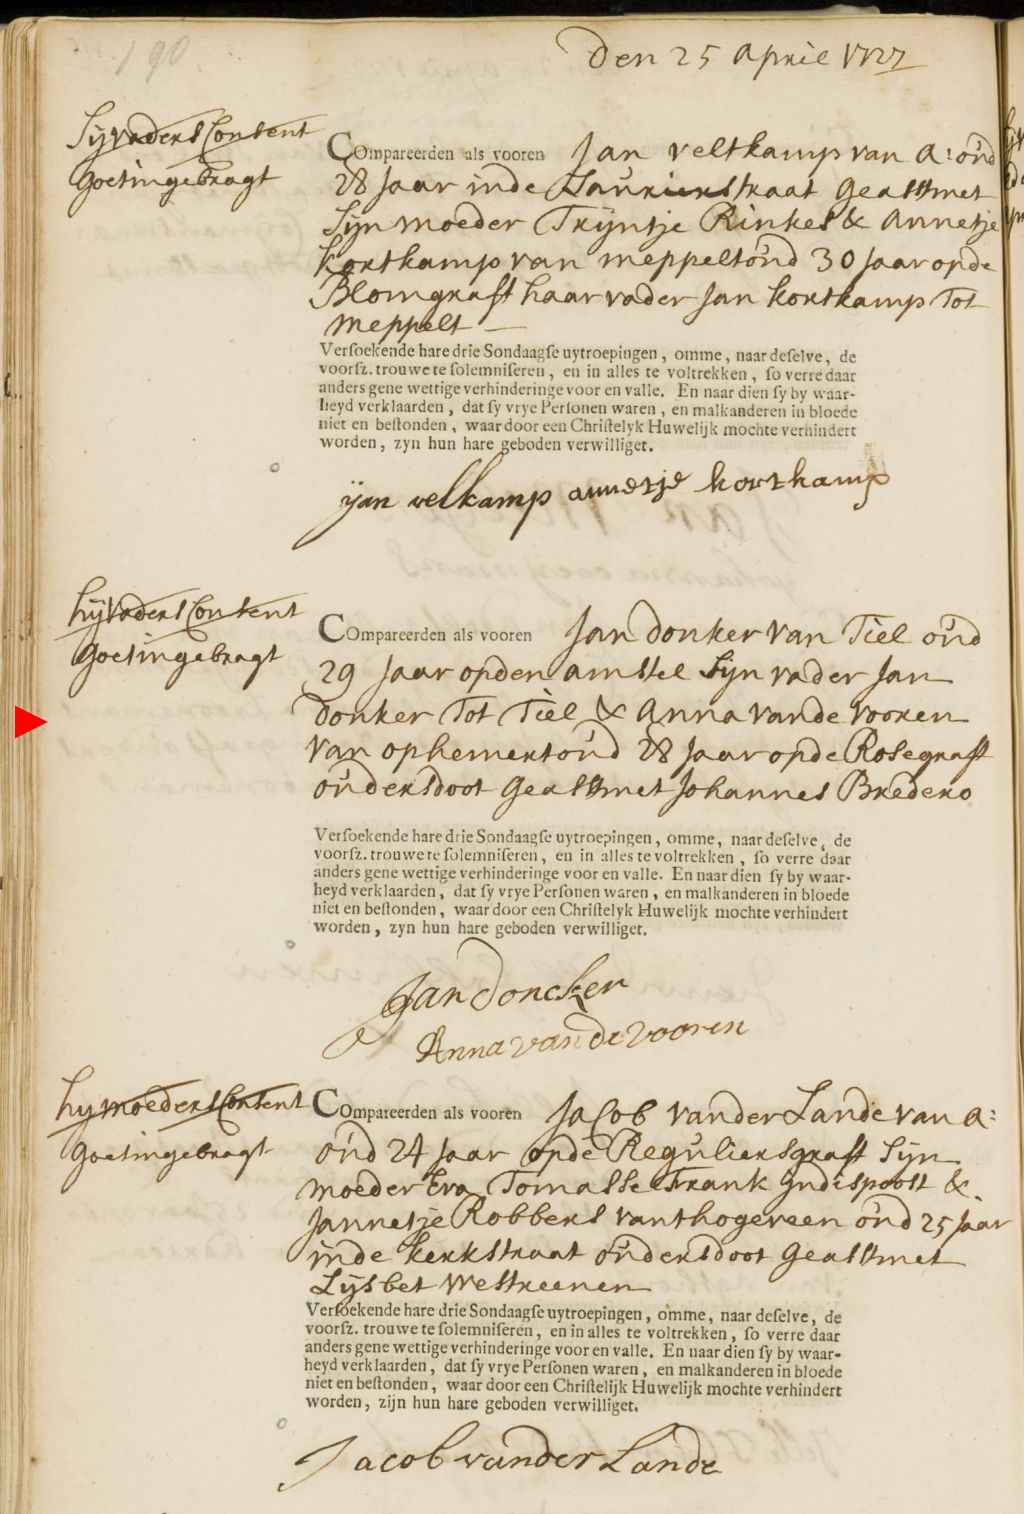 190
Den 25 April 1727
Sy vaders Consent
goet ingebragt
Compareerden als vooren Jan veltkamp van A: oud
28 Jaar inde Laurierstraat geasst met
Syn moeder Tryntje Rinkes & Annetje
kortkamp van meppelt oud 30 Jaar op de
Blomgraft haar vader Jan kortkamp Tot
meppelt —
Versoekende hare drie Sondaagse uytroepingen, omme, naar deselve, de
voorsz. trouwe te solemniseren, en in alles te voltrekken, so verre daar
anders gene wettige verhinderinge voor en valle. En naar dien sy by waar-
heyd verklaarden, dat sy vrye Personen waren, en malkanderen in bloede
niet en bestonden, waar door een Christelyk Huwelijk mochte verhindert
worden, zyn hun hare geboden verwilliget.
ijan velkamp annetje kortkamp
hy vaders Consent
goet ingebragt
Compareerden als vooren Jan donker van Tiel oud
29 Jaar op den amstel Syn vader Jan
donker Tot Tiel & Anna vande vooren
van ophemert oud 28 Jaar op de Rosegraft
ouders doot geasst met Johannes Bredero
Versoekende hare drie Sondaagse uytroepingen, omme, naar deselve, de
voorsz. trouwe te solemniseren, en in alles te voltrekken, so verre daar
anders gene wettige verhinderinge voor en valle. En naar dien sy by waar-
heyd verklaarden, dat sy vrye Personen waren, en malkanderen in bloede
niet en bestonden, waar door een Christelyk Huwelijk mochte verhindert
worden, zyn hun hare geboden verwilliget.
Jan Doncker
Anna van de vooren
hy moeders Consent
goet ingebragt
Compareerden als vooren Jacob vander Lande van A:
oud 24 Jaar op de Reguliersgraft Syn
moeder Eva Tomasse Frank Indispoost &
Jannetje Robbers vant hogeveen oud 25 Jaar
inde kerkstraat ouders doot geasst met
Lysbet Westreenen
Versoekende hare drie Sondaagse uytroepingen, omme, naar deselve, de
voorsz. trouwe te solemniseren, en in alles te voltrekken, so verre daar
anders gene wettige verhinderinge voor en valle. En naar dien sy by waar-
heyd verklaarden, dat sy vrye Personen waren, en malkanderen in bloede
niet en bestonden, waar door een Christelijk Huwelijk mochte verhindert
worden, zijn hun hare geboden verwilliget.
Jacob vander Lande